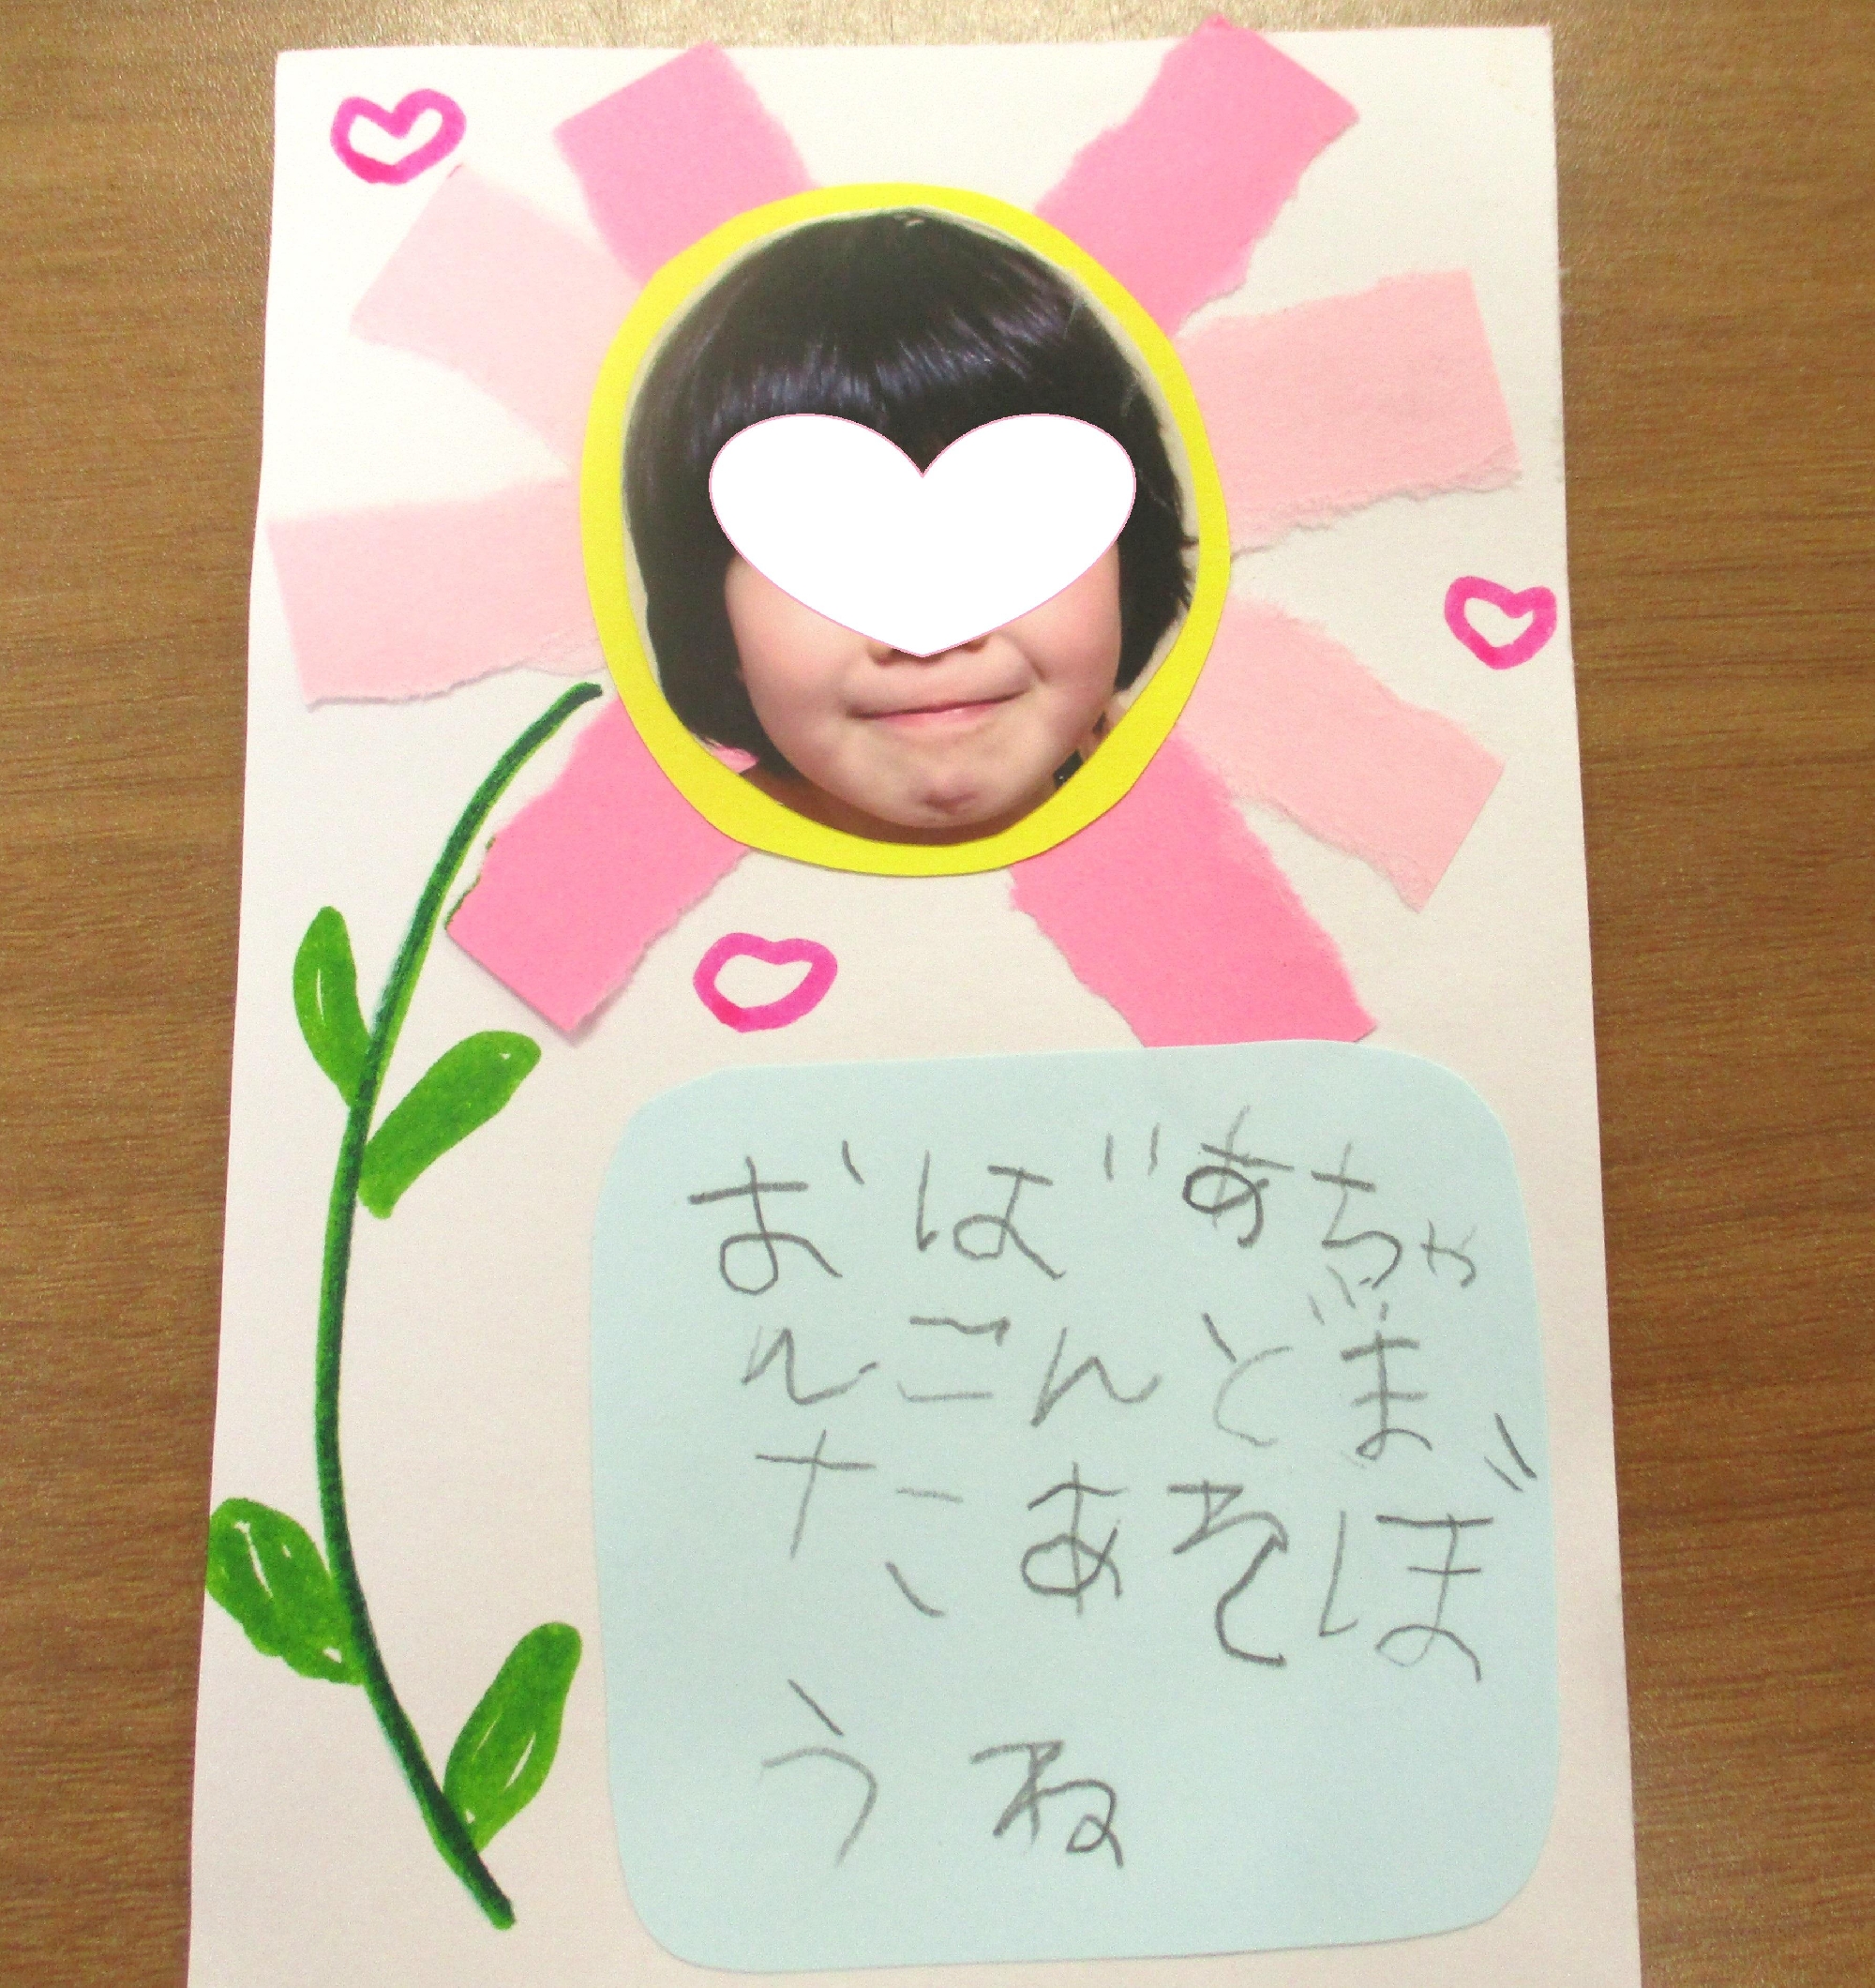 おばあちゃ
んこんどま
たあそぼ
うね